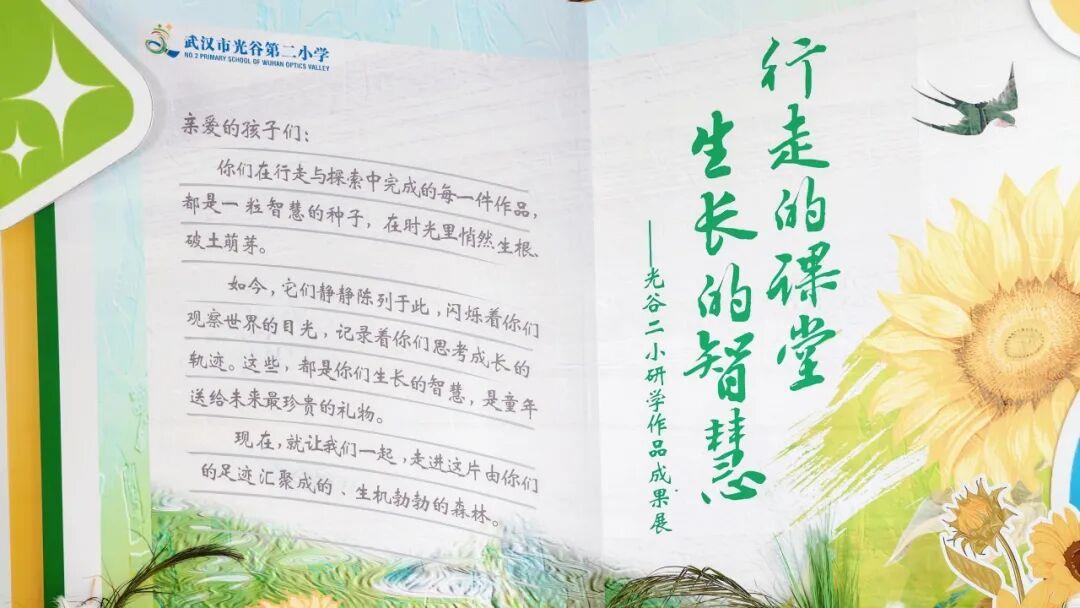 武汉市光谷第二小学
NO.2 PRIMARY SCHOOL OF WUHAN OPTICS VALLEY
亲爱的孩子们:
你们在行走与探索中完成的每一件作品,
都是一粒智慧的种子,在时光里悄然生根、
破土萌芽。
如今,它们静静陈列于此,闪烁着你们
观察世界的目光,记录着你们思考成长的
轨迹。这些,都是你们生长的智慧,是童年
送给未来最珍贵的礼物。
现在,就让我们一起,走进这片由你们
的足迹汇聚成的、生机勃勃的森林。
行走的课堂
生长的智慧
——光谷二小研学作品成果展